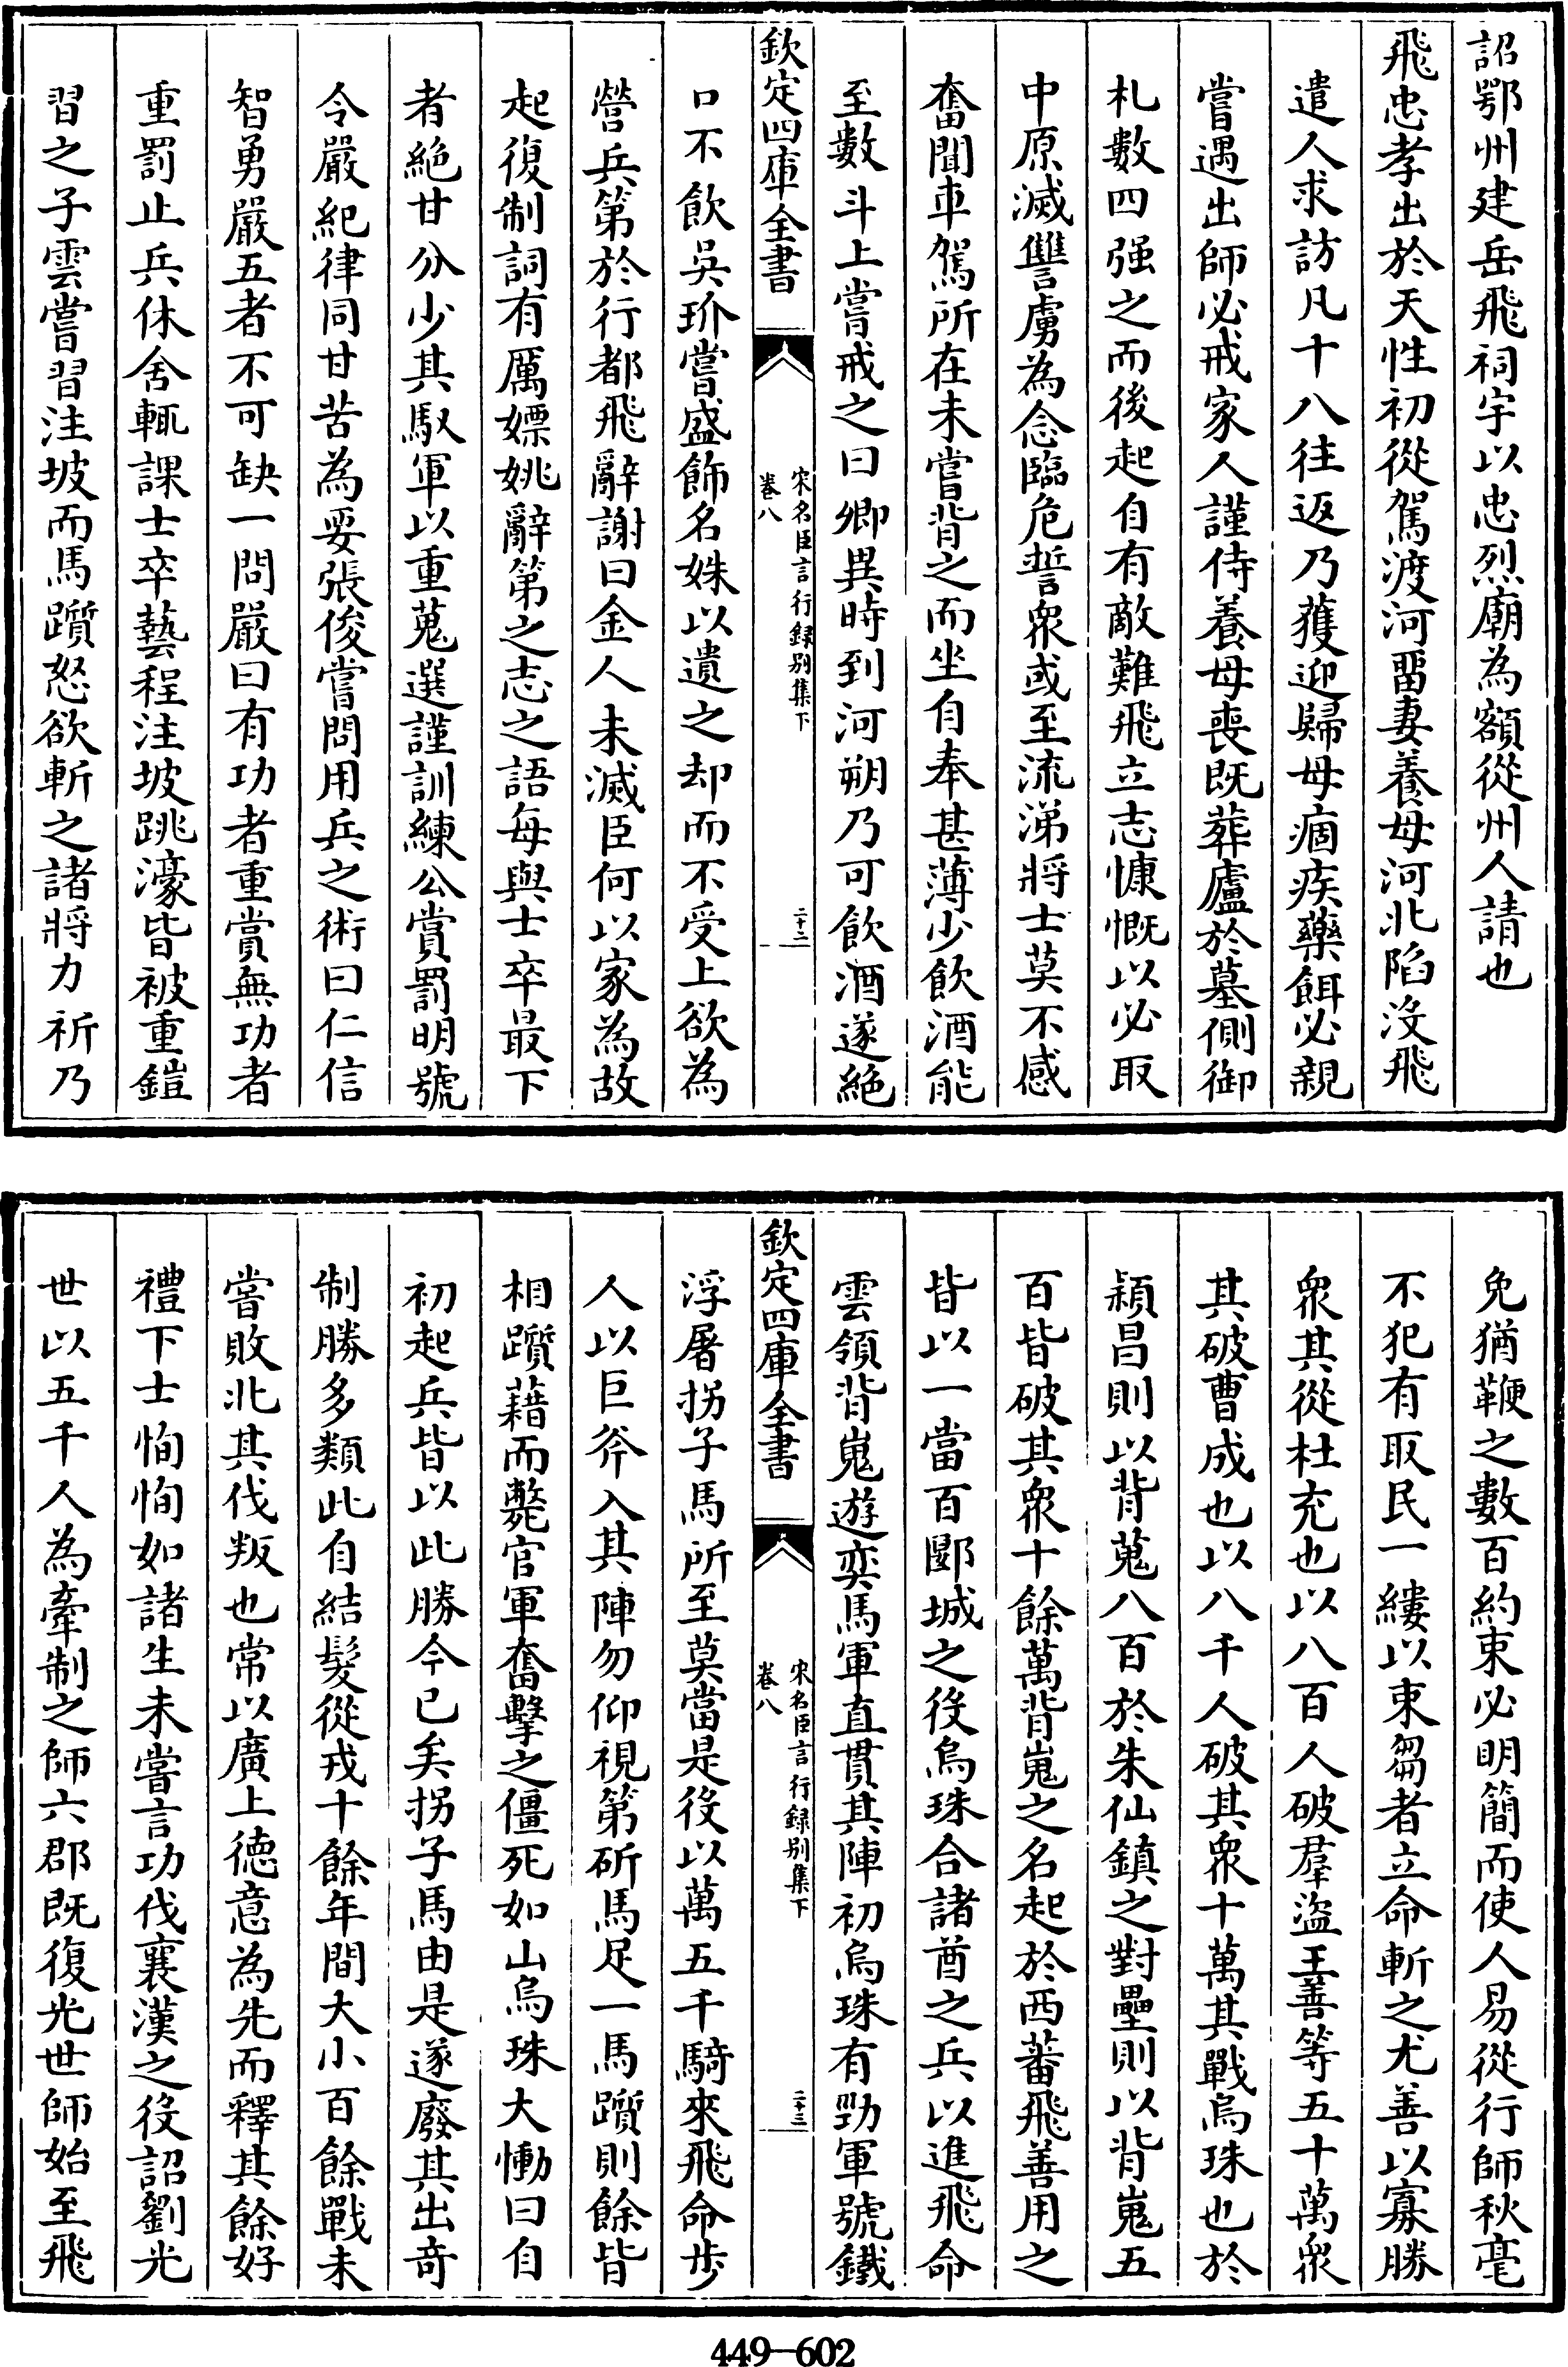 詔鄂州建岳飛祠宇以忠烈廟為額從州人請也
飛忠孝出於天性初從駕渡河留妻養母河北陷沒飛
遣人求訪凡十八往返乃獲迎歸母痼疾藥餌必親
嘗遇出師必戒家人謹侍養母喪既葬廬於墓側御
札數四强之而後起自有敵難飛立志慷慨以必取
中原滅讐虜為念臨危誓衆或至流涕將士莫不感
奮聞車駕所在未嘗背之而坐自奉甚薄少飲酒能
至數斗上嘗戒之曰卿異時到河朔乃可飲酒遂絶
欽定四庫全書
宋名臣言行録别集下
卷八
二十二
口不飲吳玠嘗盛飾名姝以遺之却而不受上欲為
營兵第於行都飛辭謝曰金人未滅臣何以家為故
起復制詞有厲嫖姚辭第之志之語每與士卒最下
者絶甘分少其馭軍以重蒐選謹訓練公賞罰明號
令嚴紀律同甘苦為要張俊嘗問用兵之術曰仁信
智勇嚴五者不可缺一問嚴曰有功者重賞無功者
重罰止兵休舍輒課士卒藝程注坡跳濠皆被重鎧
習之子雲嘗習注坡而馬躓怒欲斬之諸將力祈乃
免猶鞭之數百約束必明簡而使人易從行師秋毫
不犯有取民一縷以束芻者立命斬之尤善以寡勝
衆其從杜充也以八百人破羣盜王善等五十萬衆
其破曹成也以八千人破其衆十萬其戰烏珠也於
潁昌則以背蒐八百於朱仙鎮之對壘則以背嵬五
百皆破其衆十餘萬背嵬之名起於西蕃飛善用之
皆以一當百郾城之役烏珠合諸酋之兵以進飛命
雲領背嵬遊奕馬軍直貫其陣初烏珠有勁軍號鐵
欽定四庫全書
宋名臣言行録别集下
卷八
二十三
浮屠拐子馬所至莫當是役以萬五千騎來飛命步
人以巨斧入其陣勿仰視第斫馬足一馬躓則餘皆
相躓藉而斃官軍奮擊之僵死如山烏珠大慟曰自
初起兵皆以此勝今已矣拐子馬由是遂廢其出竒
制勝多類此自結髮從戎十餘年間大小百餘戰未
嘗敗北其伐叛也常以廣上德意為先而釋其餘好
禮下士恂恂如諸生未嘗言功伐襄漢之役詔劉光
世以五千人為牽制之師六郡既復光世師始至飛
449—602